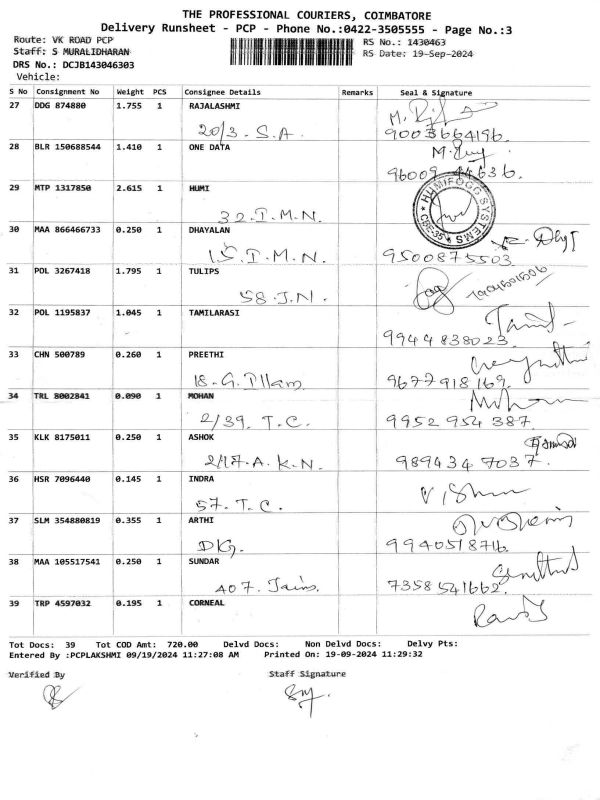 THE PROFESSIONAL COURIERS, COIMBATORE
Delivery Runsheet - PCP - Phone No.:0422-3505555 - Page No.:3
Route: VK ROAD PCP RS No.: 1430463
Staff: S MURALIDHARAN RS Date: 19-Sep-2024
DRS No.: DCJB143046303
Vehicle:
S No Consignment No Weight PCS Consignee Details Remarks Seal & Signature
27 DDG 874880 1.755 1 RAJALASHMI
20/3. S.A. 9003664196.
28 BLR 150688544 1.410 1 ONE DATA
96009 44636.
29 MTP 1317850 2.615 1 HUMI HUMIFOGG SYSTEMS CBE-35
32. I. M. N.
30 MAA 866466733 0.250 1 DHAYALAN
15. I. M. N. 9500875503
31 POL 3267418 1.795 1 TULIPS
58. J.N.
32 POL 1195837 1.045 1 TAMILARASI
9944838023.
33 CHN 500789 0.260 1 PREETHI
18. G. Pllam 9677918169.
34 TRL 8002841 0.090 1 MOHAN
2/39. T.C. 9952 954 387.
35 KLK 8175011 0.250 1 ASHOK
2/17. A. K. N. 989434 7037.
36 HSR 7096440 0.145 1 INDRA
57. T. C.
37 SLM 354880819 0.355 1 ARTHI
9940518716.
38 MAA 105517541 0.250 1 SUNDAR
407. Jains. 7358541662.
39 TRP 4597032 0.195 1 CORNEAL
Tot Docs: 39 Tot COD Amt: 720.00 Delvd Docs: Non Delvd Docs: Delvy Pts:
Entered By :PCPLAKSHMI 09/19/2024 11:27:08 AM Printed On: 19-09-2024 11:29:32
Verified By Staff Signature